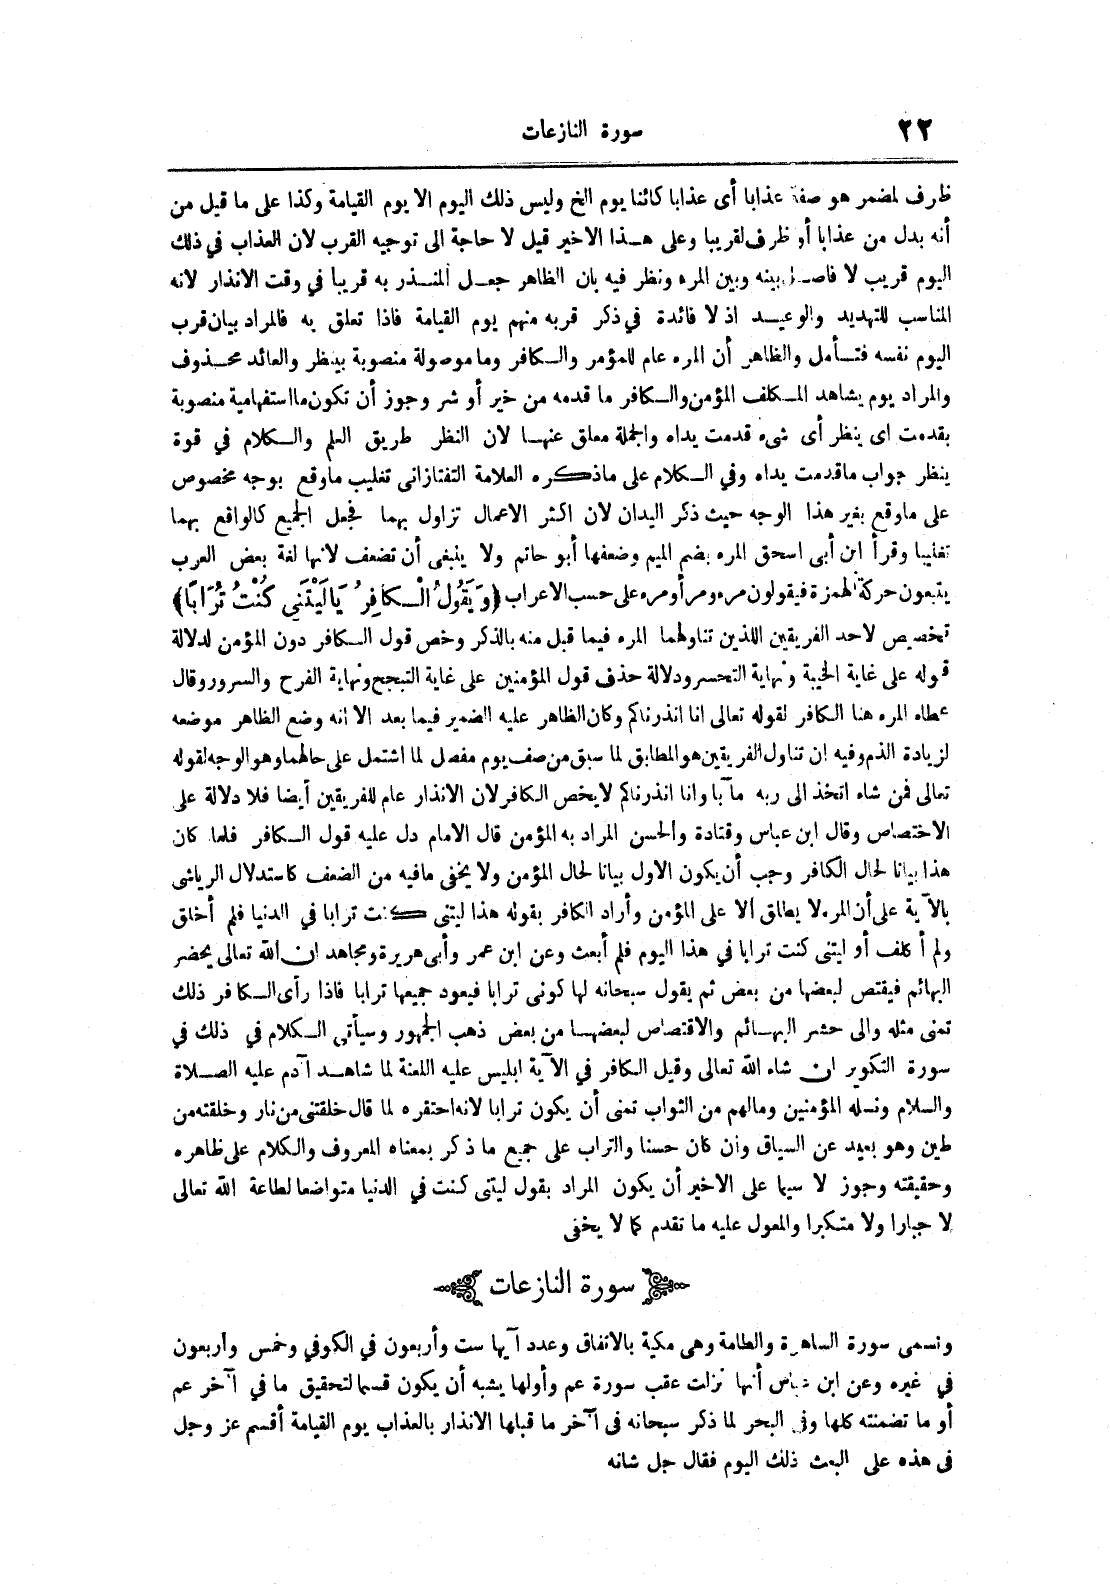 ٢٢
سورة النازعات
ظرف لمضمر هو صفة عذابا أى عذابا كائنا يوم الخ وليس ذلك اليوم الا يوم القيامة وكذا على ما قيل من
أنه بدل من عذابا أو ظرف لقريبا وعلى هذا الاخير قيل لا حاجة الى توجيه القرب لان العذاب في ذلك
اليوم قريب لا فاصل بينه وبين المرء ونظر فيه بان الظاهر جعل المنذر به قريبا في وقت الانذار لانه
المناسب للتهديد والوعيد اذ لا فائدة في ذكر قربه منهم يوم القيامة فاذا تعلق به فالمراد بيان قرب
اليوم نفسه فتأمل والظاهر أن المرء عام للمؤمن والكافر وما موصولة منصوبة بينظر والعائد محذوف
والمراد يوم يشاهد المكلف المؤمن والكافر ما قدمه من خير أو شر وجوز أن تكون ما استفهامية منصوبة
بقدمت اى ينظر أى شىء قدمت يداه والجملة معلق عنها لان النظر طريق العلم والكلام في قوة
ينظر جواب ما قدمت يداه وفي الكلام على ماذكره العلامة التفتازانى تغليب ماوقع بوجه مخصوص
على ماوقع بغير هذا الوجه حيث ذكر اليدان لان اكثر الاعمال تزاول بهما فجعل الجميع كالواقع بهما
تغليبا وقرأ ابن أبى اسحق المرء بضم الميم وضعفها أبو حاتم ولا ينبغى أن تضعف لانها لغة بعض العرب
يتبعون حركة الهمزة فيقولون مرء ومرأ ومرء على حسب الاعراب ﴿وَيَقُولُ الْكَافِرُ يَالَيْتَنِي كُنْتُ تُرَابًا﴾
تخصيص لاحد الفريقين اللذين تناولهما المرء فيما قبل منه بالذكر وخص قول الكافر دون المؤمن لدلالة
قوله على غاية الخيبة ونهاية التحسر ودلالة حذف قول المؤمنين على غاية التبجح ونهاية الفرح والسرور وقال
عطاء المرء هنا الكافر لقوله تعالى انا انذرناكم وكان الظاهر عليه الضمير فيما بعد الا انه وضع الظاهر موضعه
لزيادة الذم وفيه ان تناول الفريقين هو المطابق لما سبق من صف يوم مفصل لما اشتمل على حالهما وهو الوجه لقوله
تعالى فمن شاء اتخذ الى ربه مآبا وانا انذرناكم لا يخص الكافر لان الانذار عام للفريقين أيضا فلا دلالة على
الاختصاص وقال ابن عباس وقتادة والحسن المراد به المؤمن قال الامام دل عليه قول الكافر فلما كان
هذا بيانا لحال الكافر وجب أن يكون الاول بيانا لحال المؤمن ولا يخفى مافيه من الضعف كاستدلال الرياشى
بالآية على أن المرء لا يطلق الا على المؤمن وأراد الكافر بقوله هذا ليتنى كنت ترابا في الدنيا فلم أخلق
ولم أكلف أو ليتنى كنت ترابا في هذا اليوم فلم أبعث وعن ابن عمر وأبى هريرة ومجاهد ان الله تعالى يحضر
البهائم فيقتص لبعضها من بعض ثم يقول سبحانه لها كونى ترابا فيعود جميعها ترابا فاذا رأى الكافر ذلك
تمنى مثله والى حشر البهائم والاقتصاص لبعضها من بعض ذهب الجمهور وسيأتى الكلام في ذلك في
سورة التكوير ان شاء الله تعالى وقيل الكافر في الآية ابليس عليه اللعنة لما شاهد آدم عليه الصلاة
والسلام ونسله المؤمنين ومالهم من الثواب تمنى أن يكون ترابا لانه احتقره لما قال خلقتنى من نار وخلقته من
طين وهو بعيد عن السياق وان كان حسنا والتراب على جميع ما ذكر بمعناه المعروف والكلام على ظاهره
وحقيقته وجوز لا سيما على الاخير أن يكون المراد بقول ليتنى كنت في الدنيا متواضعا لطاعة الله تعالى
لا جبارا ولا متكبرا والمعول عليه ما تقدم كما لا يخفى
سورة النازعات
وتسمى سورة الساهرة والطامة وهى مكية بالاتفاق وعدد آيها ست وأربعون في الكوفي وخمس وأربعون
في غيره وعن ابن عباس أنها نزلت عقب سورة عم وأولها يشبه أن يكون قسما لتحقيق ما في آخر عم
أو ما تضمنته كلها وفى البحر لما ذكر سبحانه فى آخر ما قبلها الانذار بالعذاب يوم القيامة أقسم عز وجل
فى هذه على البعث ذلك اليوم فقال جل شانه